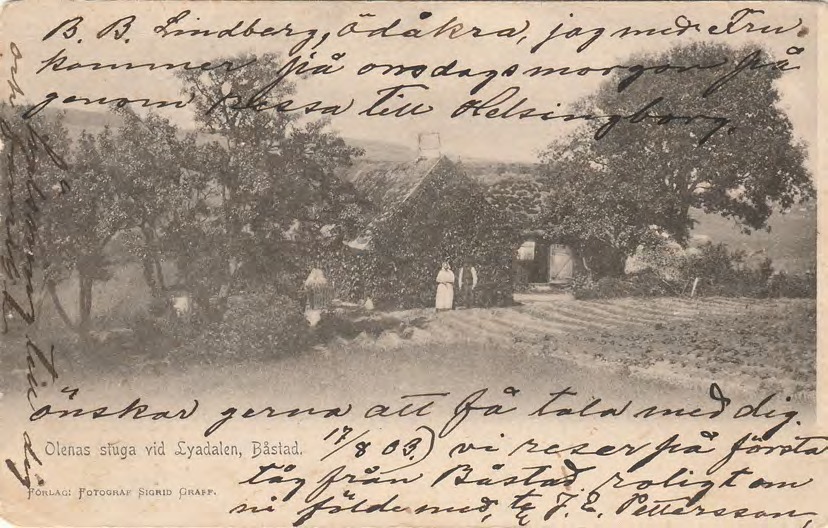 B. B. Lindberg, Ödåkra, jag med Fru
kommer på onsdagsmorgon på
genom ressa till Helsingborg,
önskar gerna att få tala med dig.
17/8 03.) vi reser på första
tåg från Båstad, roligt om
ni följde med, J. E. Pettersson,
Olenas stuga vid Lyadalen, Båstad.
FÖRLAG: FOTOGRAF SIGRID GRAFF.